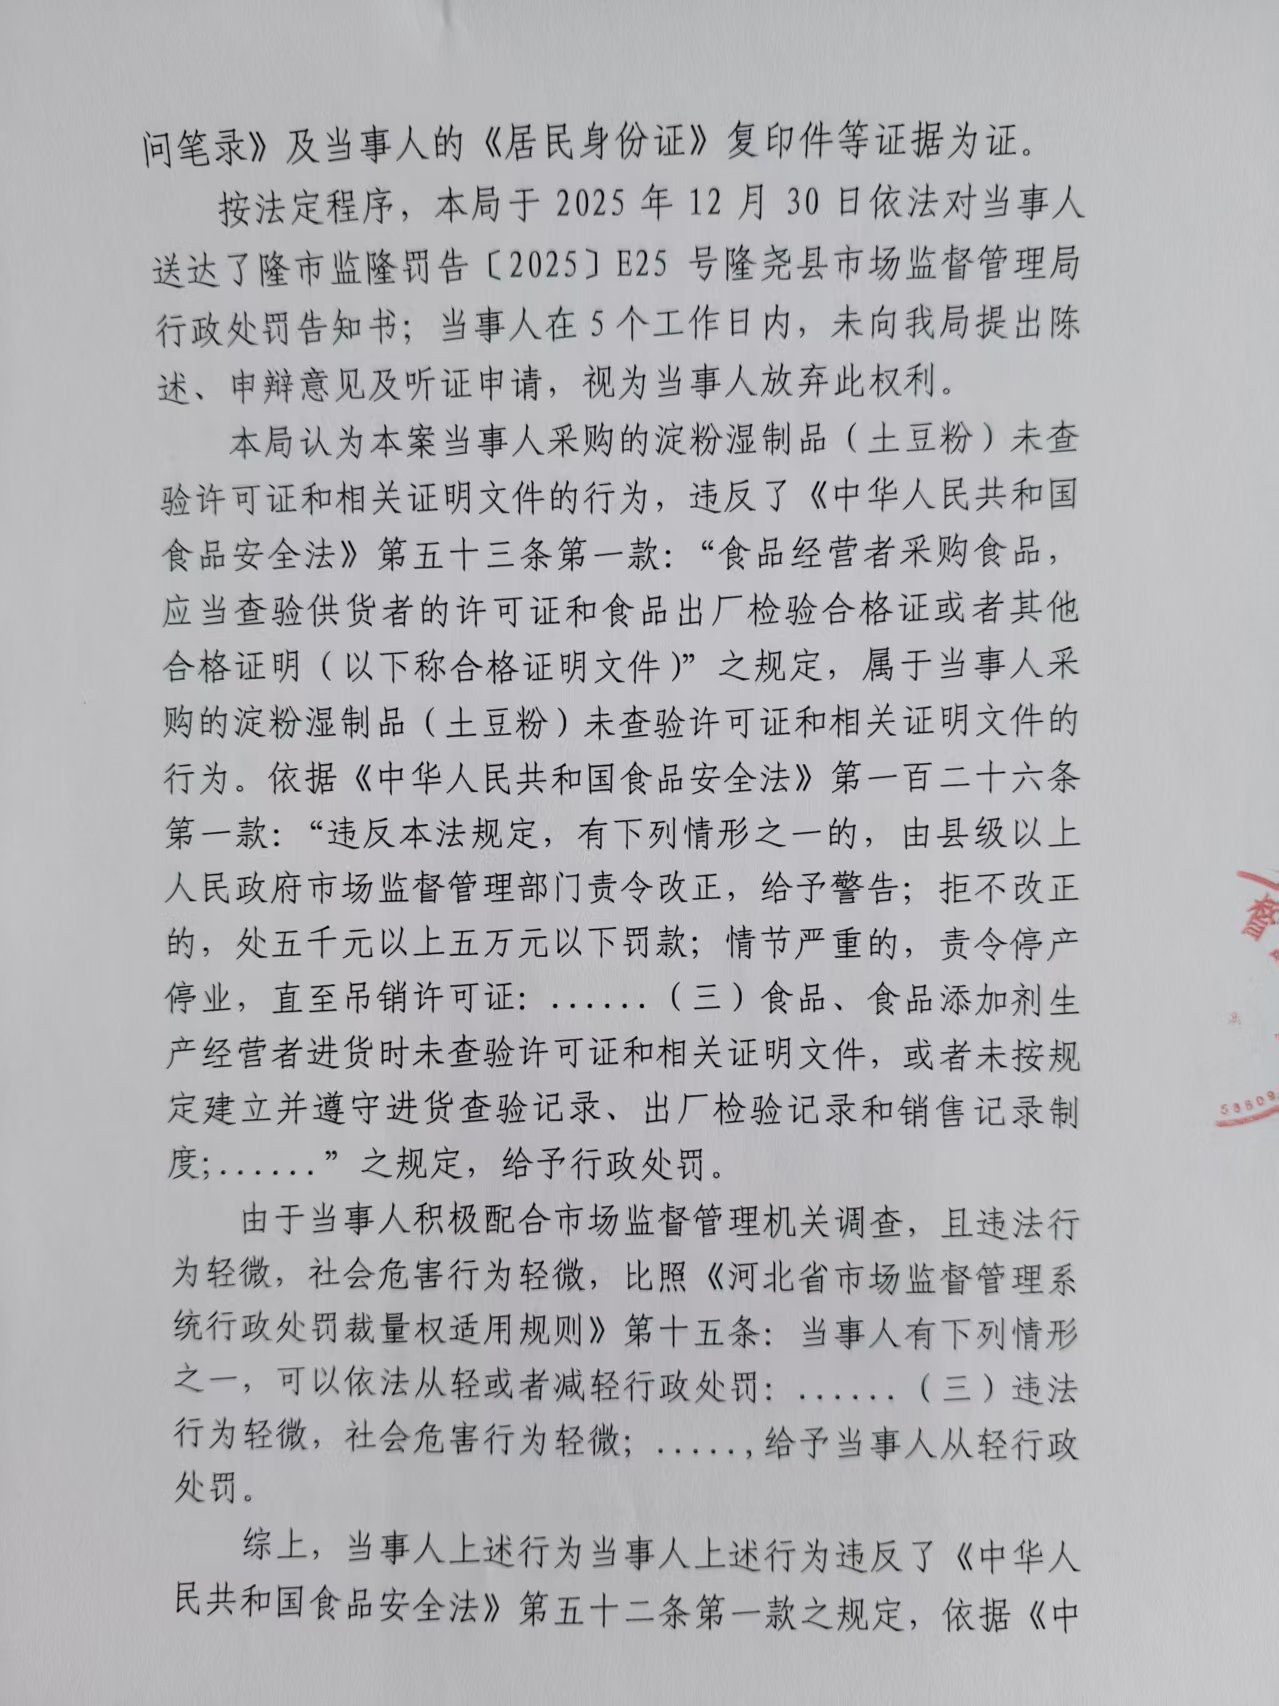 问笔录》及当事人的《居民身份证》复印件等证据为证。
按法定程序，本局于 2025 年 12 月 30 日依法对当事人
送达了隆市监隆罚告〔2025〕E25 号隆尧县市场监督管理局
行政处罚告知书；当事人在 5 个工作日内，未向我局提出陈
述、申辩意见及听证申请，视为当事人放弃此权利。
本局认为本案当事人采购的淀粉湿制品（土豆粉）未查
验许可证和相关证明文件的行为，违反了《中华人民共和国
食品安全法》第五十三条第一款：“食品经营者采购食品，
应当查验供货者的许可证和食品出厂检验合格证或者其他
合格证明（以下称合格证明文件）”之规定，属于当事人采
购的淀粉湿制品（土豆粉）未查验许可证和相关证明文件的
行为。依据《中华人民共和国食品安全法》第一百二十六条
第一款：“违反本法规定，有下列情形之一的，由县级以上
人民政府市场监督管理部门责令改正，给予警告；拒不改正
的，处五千元以上五万元以下罚款；情节严重的，责令停产
停业，直至吊销许可证：......（三）食品、食品添加剂生
产经营者进货时未查验许可证和相关证明文件，或者未按规
定建立并遵守进货查验记录、出厂检验记录和销售记录制
度;......”之规定，给予行政处罚。
由于当事人积极配合市场监督管理机关调查，且违法行
为轻微，社会危害行为轻微，比照《河北省市场监督管理系
统行政处罚裁量权适用规则》第十五条：当事人有下列情形
之一，可以依法从轻或者减轻行政处罚：......（三）违法
行为轻微，社会危害行为轻微；.....,给予当事人从轻行政
处罚。
综上，当事人上述行为当事人上述行为违反了《中华人
民共和国食品安全法》第五十二条第一款之规定，依据《中
督